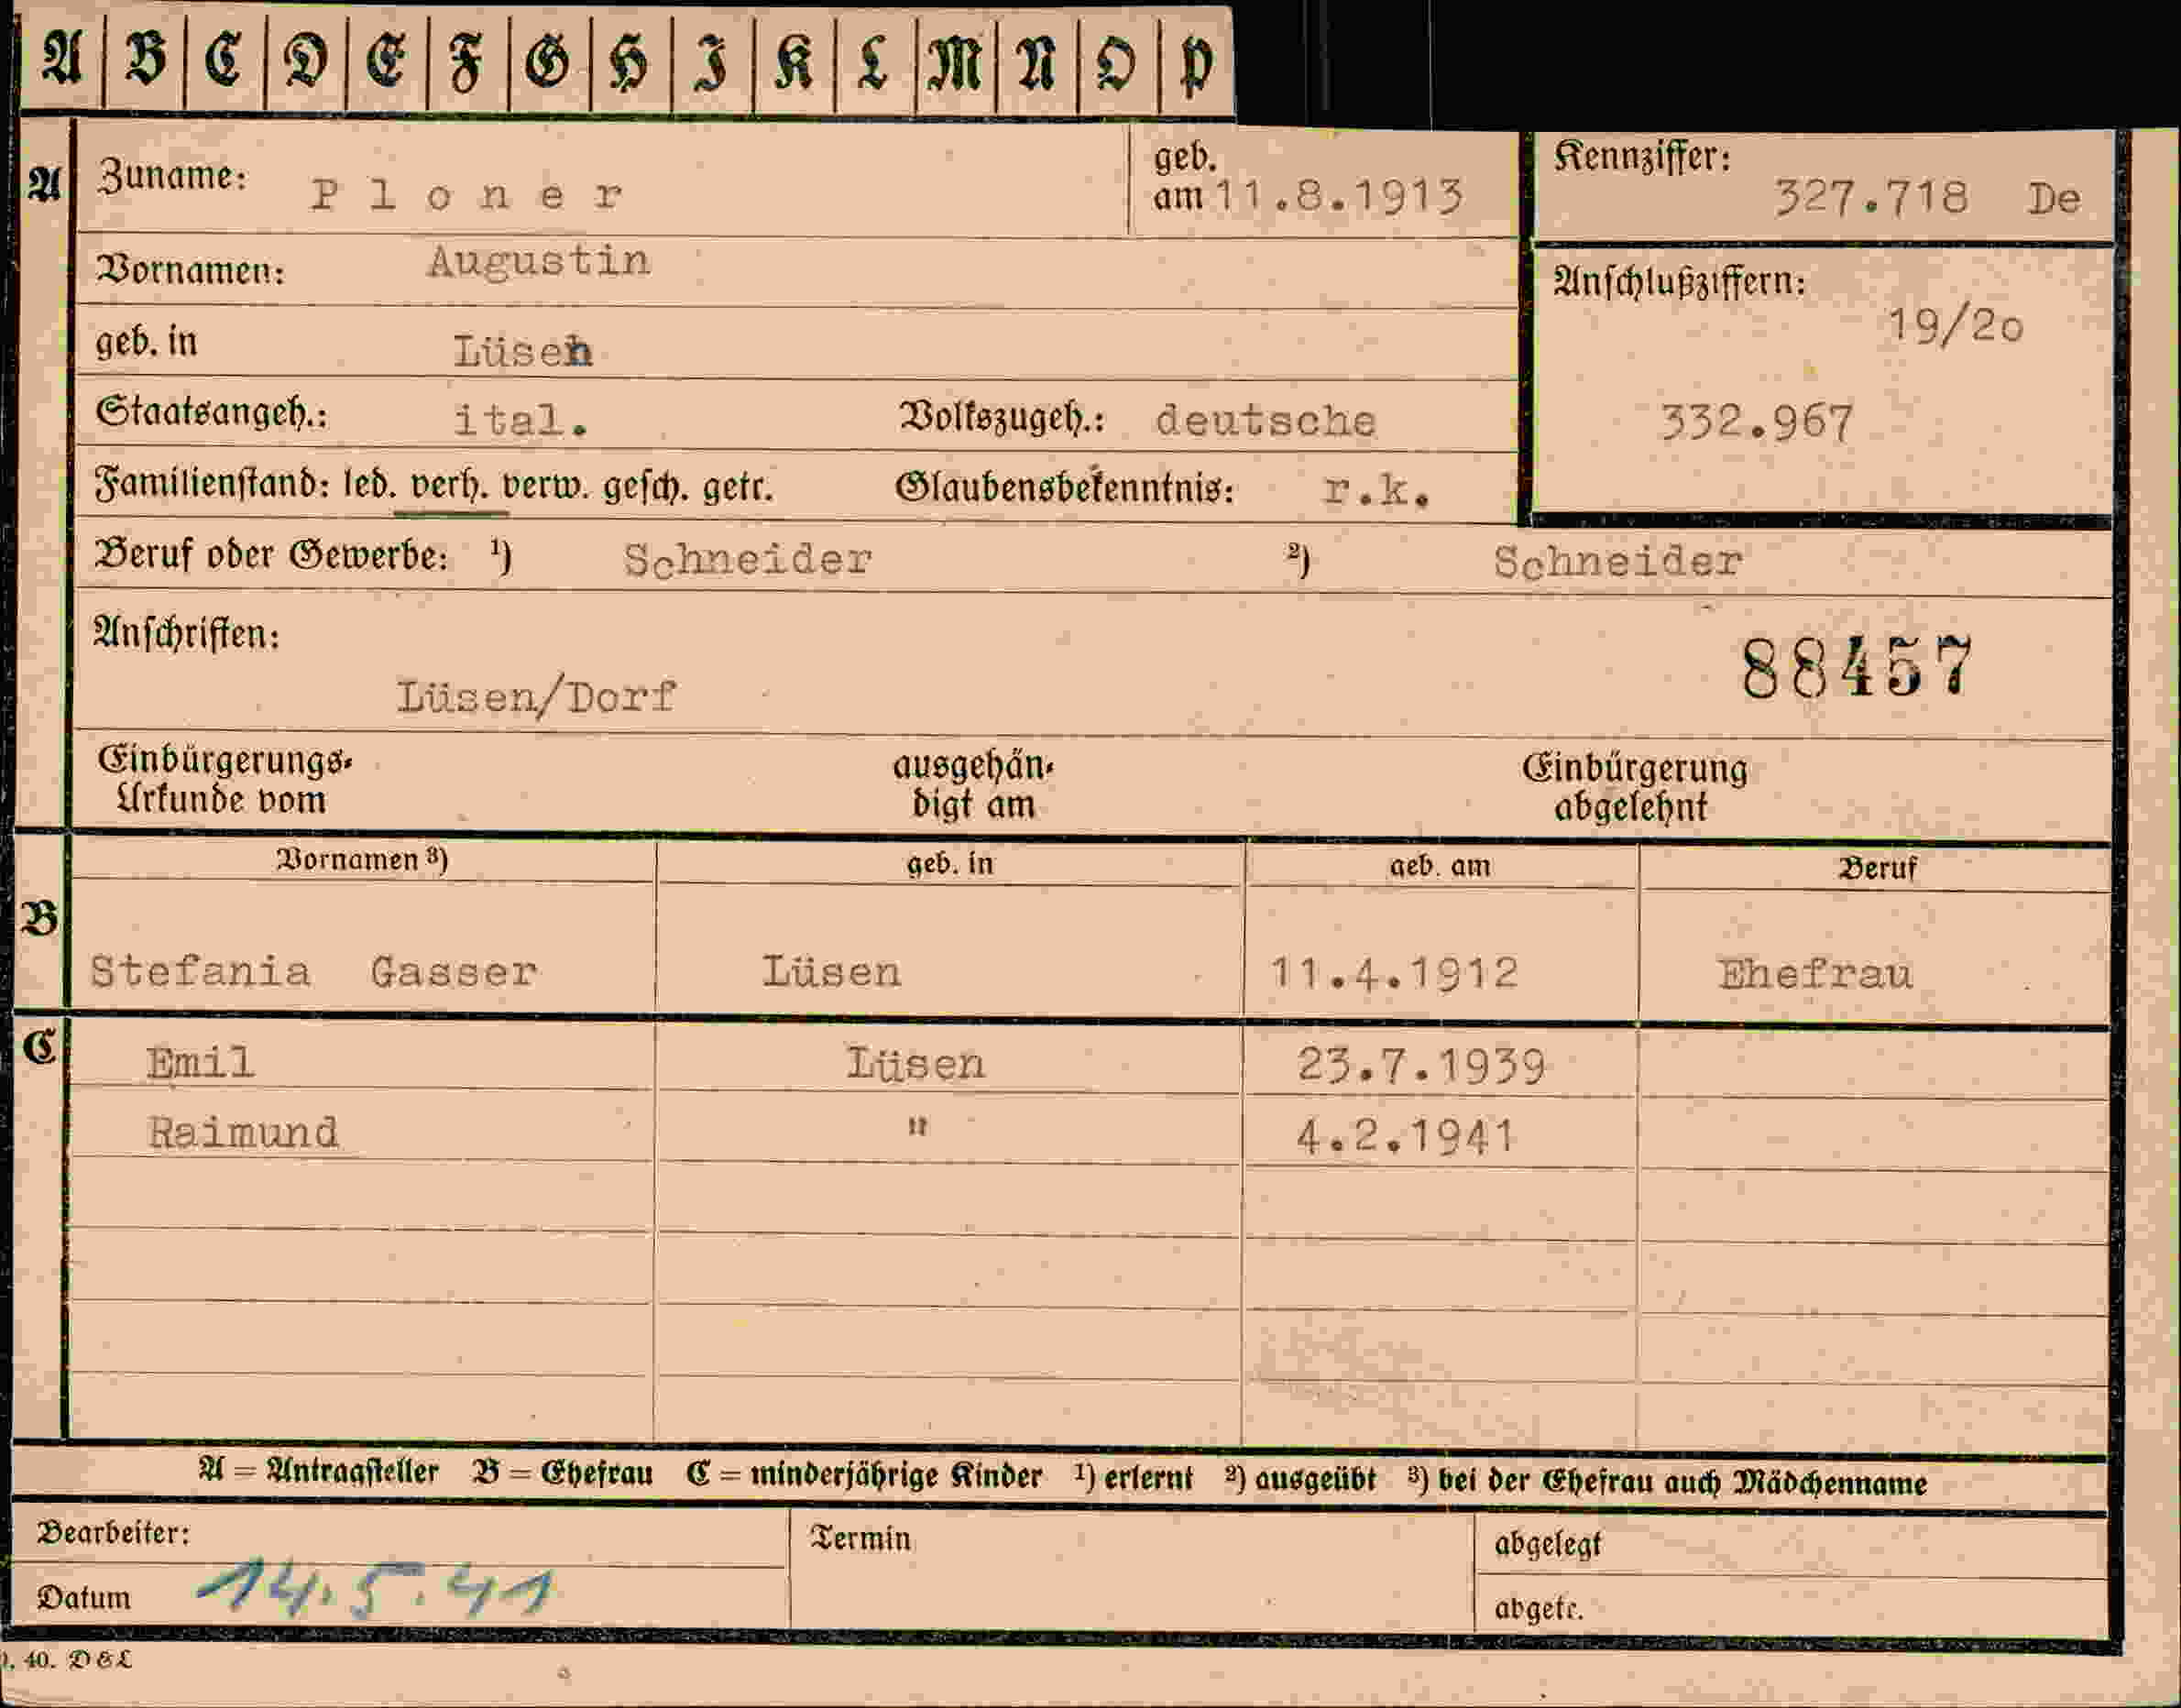 A B C D E F G H I K L M N O P
A Zuname: Ploner geb. am 11.8.1913 Kennziffer: 327.718 De
Vornamen: Augustin
geb. in Lüsen
Anschlußziffern: 19/2o
Staatsangeh.: ital. Volkszugeh.: deutsche 332.967
Familienstand: led. verh. verw. gesch. getr. Glaubensbekenntnis: r.k.
Beruf oder Gewerbe: ¹) Schneider ²) Schneider
Anschriften: 88457
Lüsen/Dorf
Einbürgerungs- ausgehän- Einbürgerung
Urkunde vom digt am abgelehnt
Vornamen ³) geb. in geb. am Beruf
B
Stefania Gasser Lüsen 11.4.1912 Ehefrau
C Emil Lüsen 23.7.1939
Raimund " 4.2.1941
A = Antragsteller B = Ehefrau C = minderjährige Kinder ¹) erlernt ²) ausgeübt ³) bei der Ehefrau auch Mädchenname
Bearbeiter: Termin abgelegt
Datum 14.5.41 abgetr.
40. D & L